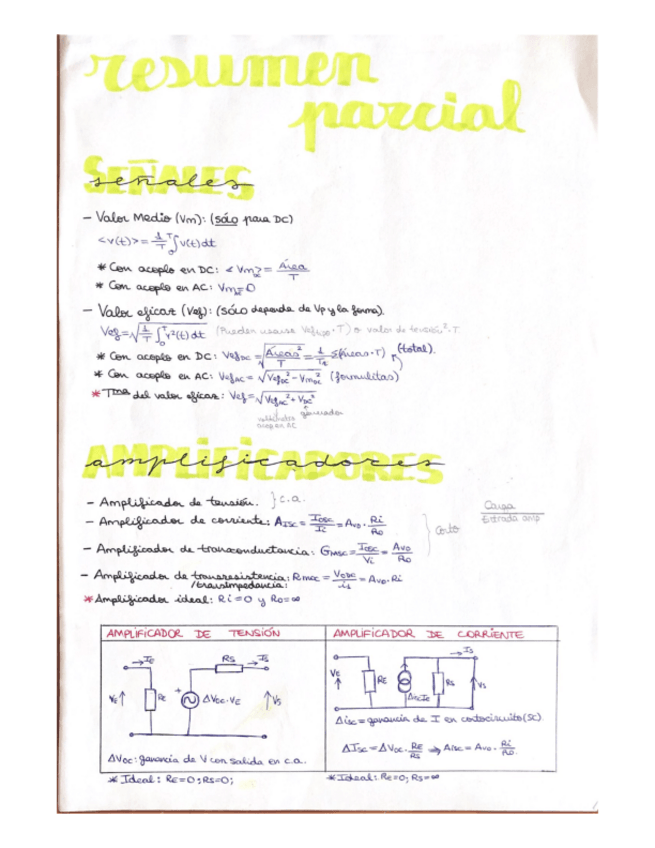 resumen
parcial
SEÑALES
señales
- Valor Medio (Vm): (sólo para DC)
<v(t)> = 1/T ∫₀ᵀ v(t)dt
* Con acoplo en DC: <Vm> = Área/T
* Con acoplo en AC: Vm = 0
- Valor eficaz (Vef): (sólo depende de Vp y la forma).
Vef = √(1/T ∫₀ᵀ v²(t) dt) (Pueden usarse · T) o valor de tensión² · T.
* Con acoplo en DC: VefDC = √(Áreas²/T) = (total).
* Con acoplo en AC: VefAC = √(VefDC² - VmDC²) (formulitas)
* Tma del valor eficaz: Vef = √(VefAC² + VDC²)
generador
voltímetro
acop en AC
AMPLIFICADORES
amplificadores
- Amplificador de tensión. } c.a.
- Amplificador de corriente: AISC = Iosc/Ii = Avo · Ri/Ro
Corto
Carga
Entrada amp
- Amplificador de transconductancia: GMSC = Iosc/Vi = Avo/Ro
- Amplificador de transresistencia: Rmoc = Vosc/ii = Avo · Ri
/transimpedancia:
* Amplificador ideal: Ri = 0 y Ro = ∞
AMPLIFICADOR DE TENSIÓN
IE RS IS
VE↑ RE + AVOC·VE ↑VS
AVOC: ganancia de V con salida en c.a.
* Ideal: RE=0; RS=0;
AMPLIFICADOR DE CORRIENTE
IS
VE RE AiscIE RS VS
Aisc = ganancia de I en cortocircuito (SC).
AISC = AVOC · RE/RS ⇒ AISC = Avo · Ri/Ro.
* Ideal: RE=0; RS=∞